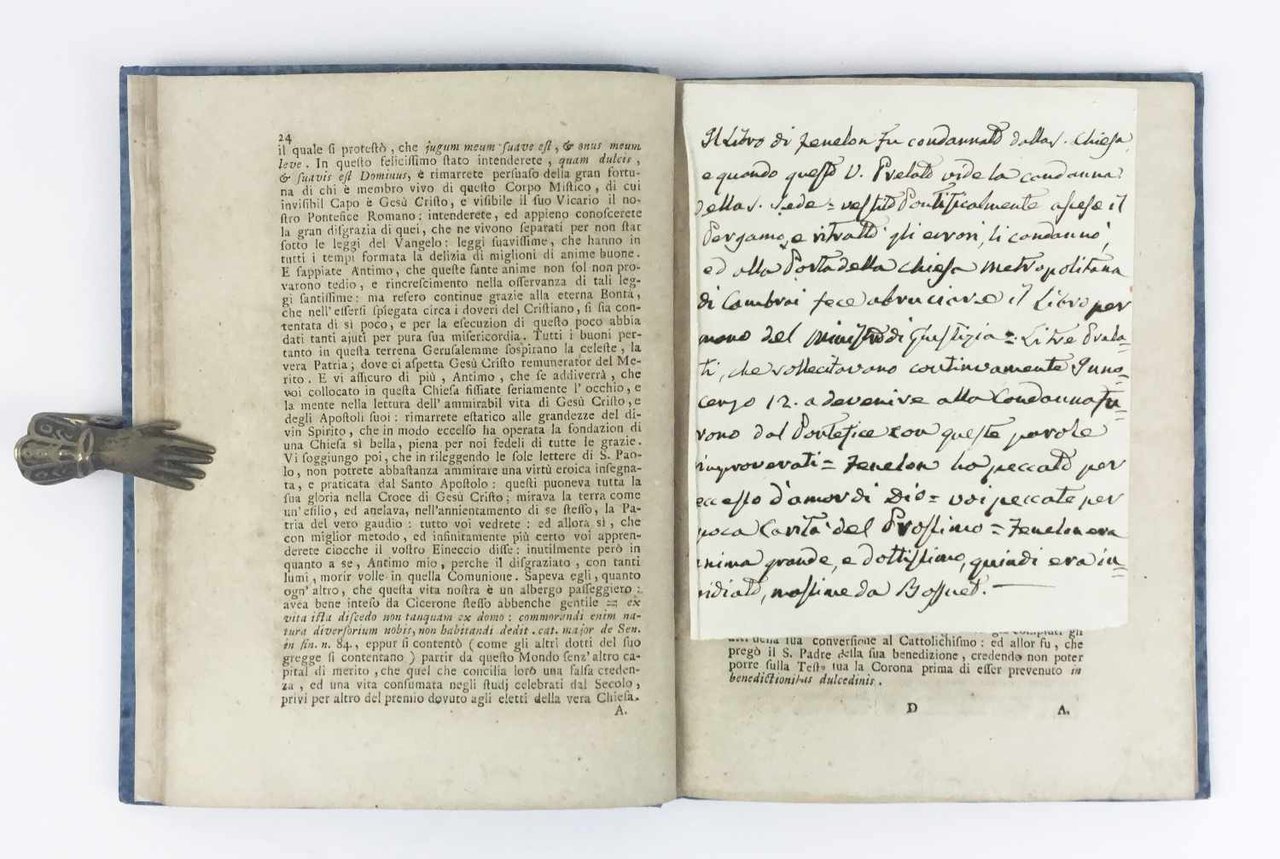 24
il quale ſi proteſtò, che jugum meum ſuave eſt, & onus meum
leve. In queſto feliciſſimo ſtato intenderete, quam dulcis,
& ſuavis eſt Dominus, è rimarrete perſuaſo della gran fortu-
na di chi è membro vivo di queſto Corpo Miſtico, di cui
inviſibil Capo è Gesù Criſto, e viſibile il ſuo Vicario il no-
ſtro Pontefice Romano: intenderete, ed appieno conoſcerete
la gran diſgrazia di quei, che ne vivono ſeparati per non ſtar
ſotto le leggi del Vangelo: leggi ſuaviſſime, che hanno in
tutti i tempi formata la delizia di miglioni di anime buone.
E ſappiate Antimo, che queſte ſante anime non ſol non pro-
varono tedio, e rincreſcimento nella oſſervanza di tali leg-
gi ſantiſſime: ma reſero continue grazie alla eterna Bontà,
che nell'eſſerſi ſpiegata circa i doveri del Criſtiano, ſi ſia con-
tentata di sì poco, e per la eſecuzion di queſto poco abbia
dati tanti ajuti per pura ſua miſericordia. Tutti i buoni per-
tanto in queſta terrena Geruſalemme ſoſpirano la celeſte, la
vera Patria; dove ci aſpetta Gesù Criſto remunerator del Me-
rito. E vi aſſicuro di più, Antimo, che ſe addiverrà, che
voi collocato in queſta Chieſa fiſſiate ſeriamente l'occhio, e
la mente nella lettura dell'ammirabil vita di Gesù Criſto, e
degli Apoſtoli ſuoi: rimarrete eſtatico alle grandezze del di-
vin Spirito, che in modo eccelſo ha operata la fondazion di
una Chieſa sì bella, piena per noi fedeli di tutte le grazie.
Vi ſoggiungo poi, che in rileggendo le ſole lettere di S. Pao-
lo, non potrete abbaſtanza ammirare una virtù eroica inſegna-
ta, e praticata dal Santo Apoſtolo: queſti puoneva tutta la
ſua gloria nella Croce di Gesù Criſto; mirava la terra come
un'eſilio, ed anelava, nell'annientamento di ſe ſteſſo, la Pa-
tria del vero gaudio: tutto voi vedrete: ed allora sì, che
con miglior metodo, ed infinitamente più certo voi appren-
derete ciocche il voſtro Eineccio diſſe: inutilmente però in
quanto a ſe, Antimo mio, perche il diſgraziato, con tanti
lumi, morir volle in quella Comunione. Sapeva egli, quanto
ogn'altro, che queſta vita noſtra è un albergo paſſeggiero:
avea bene inteſo da Cicerone ſteſſo abbenche gentile = ex
vita iſta diſcedo non tanquam ex domo: commorandi enim na-
tura diverſorium nobis, non habitandi dedit. cat. major de Sen.
in fin. n. 84., eppur ſi contentò (come gli altri dotti del ſuo
gregge ſi contentano) partir da queſto Mondo ſenz'altro ca-
pital di merito, che quel che concilia loro una falſa creden-
za, ed una vita conſumata negli ſtudj celebrati dal Secolo,
privi per altro del premio dovuto agli eletti della vera Chieſa.
A.
Il Libro di Fenelon fu condannato dalla s. Chieſa,
e quando queſto V. Prelato vide la condanna
della s. Sede = veſtito Pontificalmente aſceſe il
Pergamo, e ritrattò gli errori, li condannò,
ed alla Porta della Chieſa Metropolitana
di Cambrai fece abruciare il Libro per
mano del Miniſtro di Giuſtizia = Li tre Prela=
ti, che sollecitavano continuamente Inno=
cenzo 12. a devenire alla Condanna fu=
rono dal Pontefice con queſte parole
improverati = Fenelon ha peccato per
ecceſſo d'amor di Dio = voi peccate per
poca Carità del Proſſimo = Fenelon era
anima grande, e dottiſſimo, quindi era in=
vidiato, maſſime da Boſſuet.
della ſua converſione al Cattolichiſmo: ed allor fu, che
pregò il S. Padre della ſua benedizione, credendo non poter
porre ſulla Teſta ſua la Corona prima di eſſer prevenuto in
benedictionibus dulcedinis.
D
A.